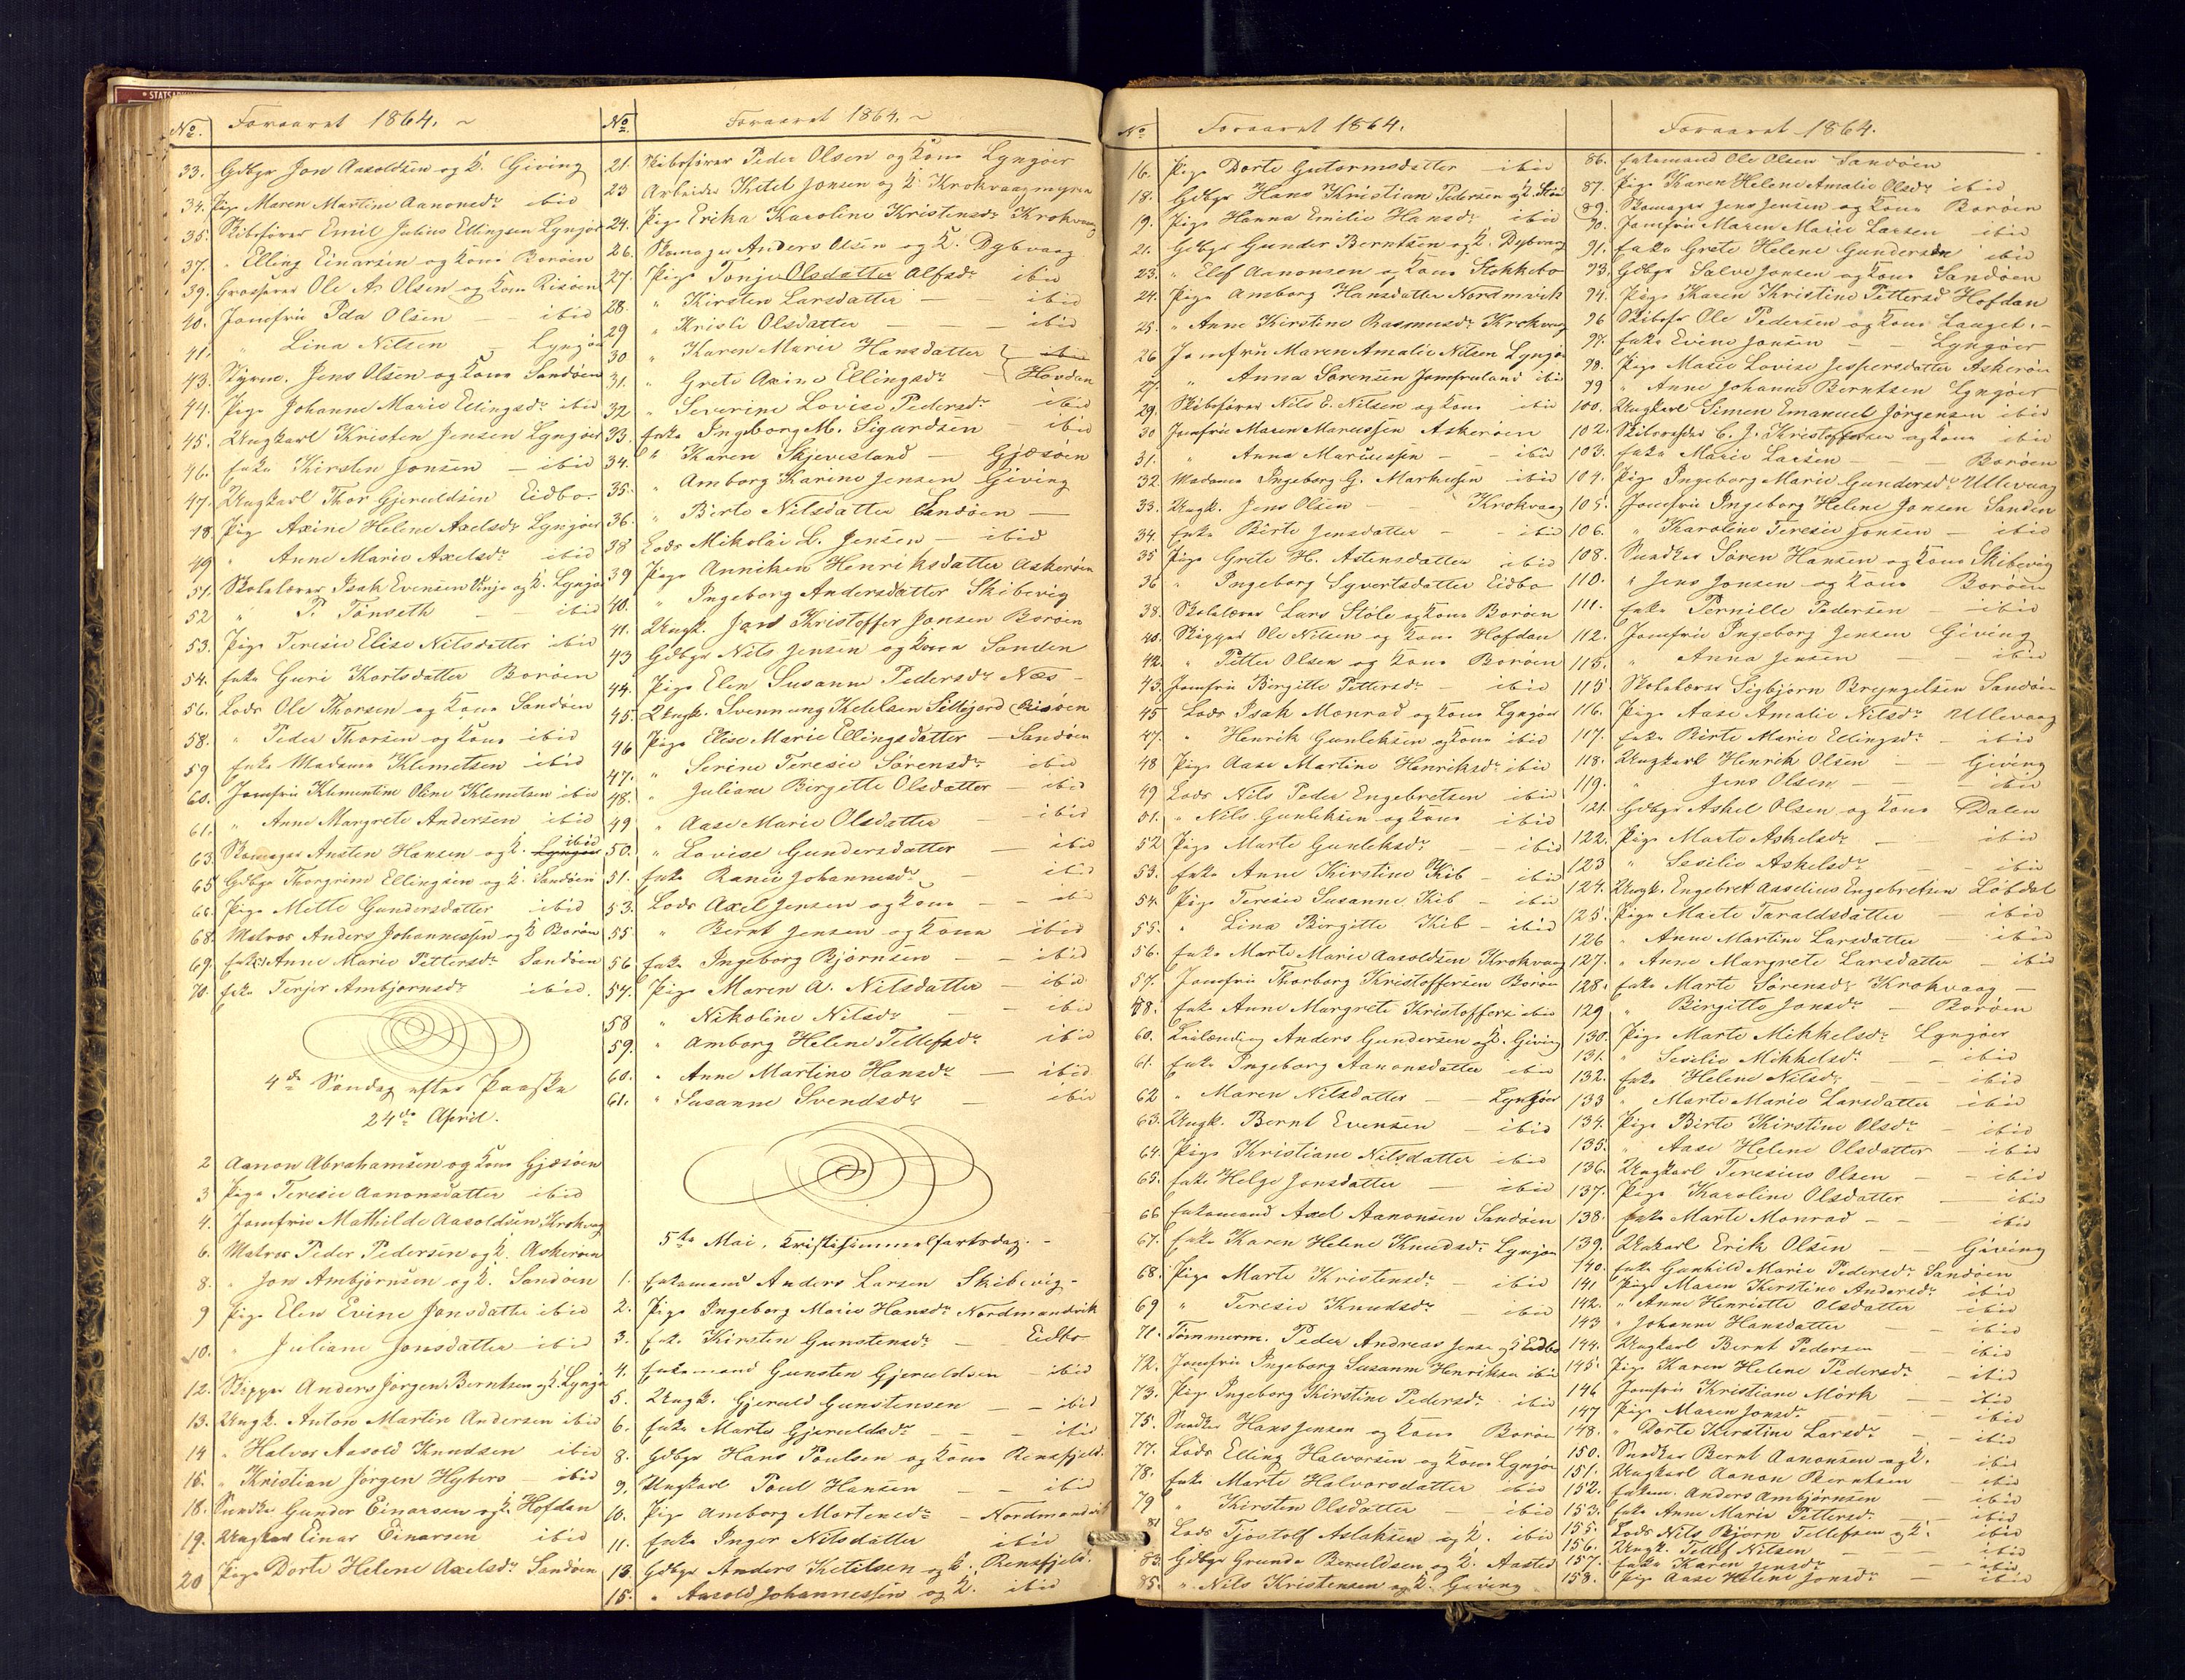 STATSAR
No. Foraaret 1864. ~
33. Gdbgr Jon Aasoldsen og K. Giving
34. Pige Maren Martine Aanonsdr ibid
35. Skibsfører Emil Julius Ellingsen Lyngøer
37. " Elling Einarsen og Kone Borøen
39. Grosserer Ole A. Olsen og Kone Risøen
40. Jomfru Ida Olsen — ibid
41. " Lina Nilsen — Lyngøer
43. Styrm. Jens Olsen og Kone Sandøen
44. Pige Johanne Marie Ellingsdr ibid
45. Ungkarl Kristen Jensen Lyngøer
46. Enke Kirsten Jonsen — ibid
47. Ungkarl Thor Gjeruldsen Eidbo
48. Pige Axine Helene Axelsdr Lyngøer
49 " Anne Marie Axelsdr ibid
51. Skolelærer Isak Evensen Vinje og K. Lyngør
52 " P. Tönseth — ibid
53. Pige Teresie Elise Nilsdatter ibid
54. Enke Guri Thortsdatter Borøen
56. Lods Ole Thorsen og Kone Sandøen
58. " Peder Thorsen og Kone ibid
59 Enke Madame Klemetsen ibid
60. Jomfru Klementine Oline Klemetsen ibid
61. " Anne Margrete Andersen ibid
63. Skomager Austen Hansen og K. Lyngøer ibid
65 Gdbgr Thorgrim Ellingsen og K. Sandøen
66. Pige Mette Gundersdatter ibid
68. Matros Anders Johannessen og K Borøen
69. Enke Anne Marie Pettersdr Sandøen
70. Enke Terjer Ambjørnsdr ibid.
4de Søndag efter Paaske
24de April.
2 Aanon Abrahamsen og Kone Gjæsøen
3 Pige Teresie Aanonsdatter ibid
4. Jomfru Mathilde Aasoldsen Krokvaag
6. Matros Peder Pedersen og K. Askerøen
8. " Jon Ambjørnsen og K. Sandøen
9 Pige Elen Evine Jonsdatter ibid
10. " Juliane Jonsdatter ibid
12. Skipper Anders Jørgen Berntsen og K. Lyngør
13. Ungk. Anton Martin Andersen ibid
14 " Halvor Aasold Knudsen ibid
16. " Kristian Jørgen Hybers — ibid
18. Snedker Gunder Einarsen og K. Hofdan
19. Ungkarl Einar Einarsen ibid
20 Pige Dorte Helene Axelsdr Sandøen
No. Foraaret 1864. ~
21. Skibsfører Peder Olsen og Kone Lyngøer
23 Arbeider Ketel Jonsen og K. Krokvaagmyren
24. Pige Erika Karoline Kristensdr Krokvaag
26. Skomager Anders Olsen og K. Dybvaag
27. Pige Tonje Olsdatter Alfsdr ibid
28. " Kirsten Larsdatter — — ibid
29 " Kristi Olsdatter — — ibid
30 " Karen Marie Hansdatter ibid
31. " Grete Axine Ellingsdr Hovdan
32 " Severine Lovise Pedersdr ibid
33. Enke Ingeborg M. Sigurdsen — ibid
34. " Karen Skjevesland — Gjæsøen
35. " Amborg Karine Jensen Giving
36. " Birte Nilsdatter Sandøen —
38 Lods Nikolai L. Jensen — ibid
39 Pige Anniken Henriksdatter Askerøen
40. " Ingeborg Andersdatter Skibevig
41. Ungk. Jens Kristoffer Jonsen Borøen
43 Gdbgr Nils Jensen og Kone Sanden
44. Pige Elen Susanne Pedersdr Næs —
45. Ungk. Svennung Ketelsen Sillejord Risøen
46 Pige Elise Marie Ellingsdatter — Sandøen
47. " Serine Teresie Sørensdr ibid
48. " Juliane Birgette Olsdatter — ibid
49 " Aase Marie Olsdatter — ibid
50. " Lovise Gundersdatter ibid
51. Enke Ranei Johannesdr — ibid
53. Lods Axel Jensen og Kone — — ibid
55 " Bernt Jensen og Kone ibid
56. Enke Ingeborg Bjørnsen — — ibid
57. Pige Maren A. Nilsdatter — ibid
58 " Nikoline Nilsdr — — ibid
59. " Amborg Helene Tellefsdr ibid
60. " Anne Martine Hansdr — ibid
61. " Susanne Svendsdr — ibid
5te Mai. Kristihimmelfartsdag. -
1. Enkemand Anders Larsen Skibevig -
2. Pige Ingeborg Marie Hansdr Nordmandvik
3. Enke Kirsten Gunstensdr — Eidbo
4. Enkemand Gunsten Gjeruldsen — ibid
5. Ungk. Gjeruld Gunstensen — — ibid
6. Enke Marte Gjeruldsdr — — ibid
8. Gdbgr Hans Poulsen og Kone Rensfjeld.
9. Ungkarl Poul Hansen — — ibid
10. Pige Amborg Mortensdr — Nordmandvik
11. Enke Inger Nilsdatter ibid
13. Gdbgr Anders Ketilsen og K. Rensfjeld.
15. " Aasold Johannessen og K. ibid
No Foraaret 1864.
16. Pige Dorte Gutormsdatter ibid
18. Gdbgr Hans Kristian Pedersen og K.
19. Pige Hanna Emilie Hansdr ibid
21. Gdbgr Gunder Berntsen og K. Dybvaag
23. " Elef Aanonsen og Kone Stokkebo
24. Pige Amborg Hansdatter Nordmvik
25. " Anne Kirstine Rasmusdr Krokvaag
26 Jomfru Maren Amalie Nilsen Lyngør
27. " Anna Sørensen Jomfruland ibid
29. Skibsfører Nils E. Nilsen og Kone ibid
30 Jomfru Maren Marcussen Askerøen
31. " Anna Marcussen — — ibid
32 Madame Ingeborg G. Markussen ibid
33. Ungk. Jens Olsen — — Krokvaag
34. Enke Birte Jensdatter — — ibid
35 Pige Grete H. Astensdatter ibid
36 " Ingeborg Syvertsdatter Eidbo
38. Skolelærer Lars Støle og Kone Borøen
40. Skipper Ole Nilsen og Kone Hofdan
42. " Petter Olsen og Kone Borøen
43. Jomfru Birgitte Pettersdr — ibid
45 Lods Isak Monrad og Kone Lyngøer
47. " Henrik Gunleksen og Kone ibid
48 Pige Aase Martine Henriksdr ibid
49 Lods Nils Peder Engebretsen ibid
51. " Nils Gunleksen og Kone ibid
52 Pige Marte Gunleksdr — — ibid
53. Enke Anne Kirstine Kib — ibid
54. Pige Teresie Susanne Kib — ibid
55. " Lina Birgitte Kib — ibid
56. Enke Marte Marie Aasoldsen Krokvaag
57. Jomfru Thorborg Kristoffersen Borøen
58. Enke Anne Margrete Kristoffers ibid
60. Leilænding Anders Gundersen og K. Giving
61. Enke Ingeborg Aanonsdatter ibid
62 " Maren Nilsdatter — — Lyngøer
63. Ungk. Bernt Evensen — ibid
64. Pige Kristiane Nilsdatter ibid
65. Enke Helge Jonsdatter — ibid
66 Enkemand Axel Aanonsen Sandøen
67. Enke Karen Helene Knudsdr Lyngør
68. Pige Marte Kristensdr — ibid
69 " Teresie Knudsdr ibid
71. Tømmerm. Peder Andreas Jens og K Eidbo
72. Jomfru Ingeborg Susanne Henriksen ibid
73. Pige Ingeborg Kirstine Pedersdr ibid
75. Snedker Hans Jensen og Kone Borøen
77. Lods Elling Halvorsen og Kone Lyngør
78. Enke Marte Halvorsdatter ibid
79 " Kirsten Olsdatter — ibid
81 Lods Tjøstolf Aslaksen og K. ibid
83. Gdbgr Grunde Beruldsen og K. Aasted
85. " Nils Kristensen og K. Giving
Foraaret 1864.
86. Enkemand Ole Olsen Sandøen
87. Pige Karen Helene Amalie Olsdr ibid
89. Skomager Jens Jensen og Kone Borøen
90. Jomfru Maren Marie Larsen ibid
91. Enke Grete Helene Gundersen ibid
93. Gdbgr Salve Jonsen og Kone Sandøen
94. Pige Karen Kristine Pettersd Hofdan
96 Skibsfr Ole Pedersen og Kone Lauget. -
97. Enke Evine Jonsen — — Lyngøer
98. Pige Marie Lovise Jespersdatter Askerøen
99 " Anne Johanne Berntsen Lyngøer
100. Ungkarl Simen Emanuel Jørgensen ibid
102. Skibsreder C. J. Kristoffersen og Kone ibid
103. Enke Marie Larsen — — — Borøen
104. Pige Ingeborg Marie Gundersdr Ullevaag
105. Jomfru Ingeborg Helene Jonsen Sanden
106. " Karoline Teresie Jonsen — ibid
108. Snedker Søren Hansen og Kone Skibevig
110. " Jens Jonsen og Kone Borøen
111. Enke Pernille Pedersen — ibid
112. Jomfru Ingeborg Jensen Giving
113. " Anna Jensen — — ibid
115 Skolelærer Sigbjørn Bryngelsen Sandøen
116. Pige Aase Amalie Nilsdr Ullevaag
117. Enke Birte Marie Ellingsdr — ibid
118. Ungkarl Henrik Olsen — — Giving
119. " Jens Olsen — — ibid
121. Gdbgr Askel Olsen og Kone Dalen
122. Pige Marte Askelsdr — — ibid
123 " Sesilie Askelsdr — — ibid
124. Ungk. Engebret Aaselius Engebretsen Løbdal
125. Pige Marte Taraldsdatter — ibid
126 " Anne Martine Larsdatter — ibid
127. " Anne Margrete Larsdatter — ibid
128. Enke Marte Sørensdr Krokvaag —
129 " Birgitte Jonsdr — Borøen
130. Pige Marte Mikkelsdr Lyngøer
131. " Sesilie Mikkelsdr — ibid
132. Enke Helene Nilsdr — — ibid
133 " Marte Marie Larsdatter ibid
134. Pige Birte Kirstine Olsdr — ibid
135. " Aase Helene Olsdatter — ibid
136. Ungkarl Teresius Olsen — — ibid
137. Pige Karoline Olsdatter — ibid
138. Enke Marte Monrad — — ibid
139. Unkarl Erik Olsen — — Giving
140. Enke Gunhild Marie Pedersdr Sandøen
141 Pige Maren Kirstine Andersdr ibid
142. " Anne Henriette Olsdatter ibid
143 " Johanne Hansdatter — — ibid
144. Ungkarl Bernt Pedersen — ibid
145. Pige Karen Helene Pedersdr — ibid
146 Jomfru Kristiane Mörk — — ibid
147 Pige Maren Jonsd. — — ibid
148. " Dorte Kirstine Larsdr — — ibid
150. Snedker Bernt Aanonsen og K. ibid
151. Ungkarl Aanon Berntsen ibid
152. Enkem. Anders Ambjørnsen — ibid
153. Enke Anne Marie Pettersdr — ibid
155. Lods Nils Bjørn Tellefsen og K. ibid
156. Ungk. Tellef Nilsen — — ibid
157. Enke Karen Jensdr — — ibid
158. Pige Aase Helene Jonsdr — ibid